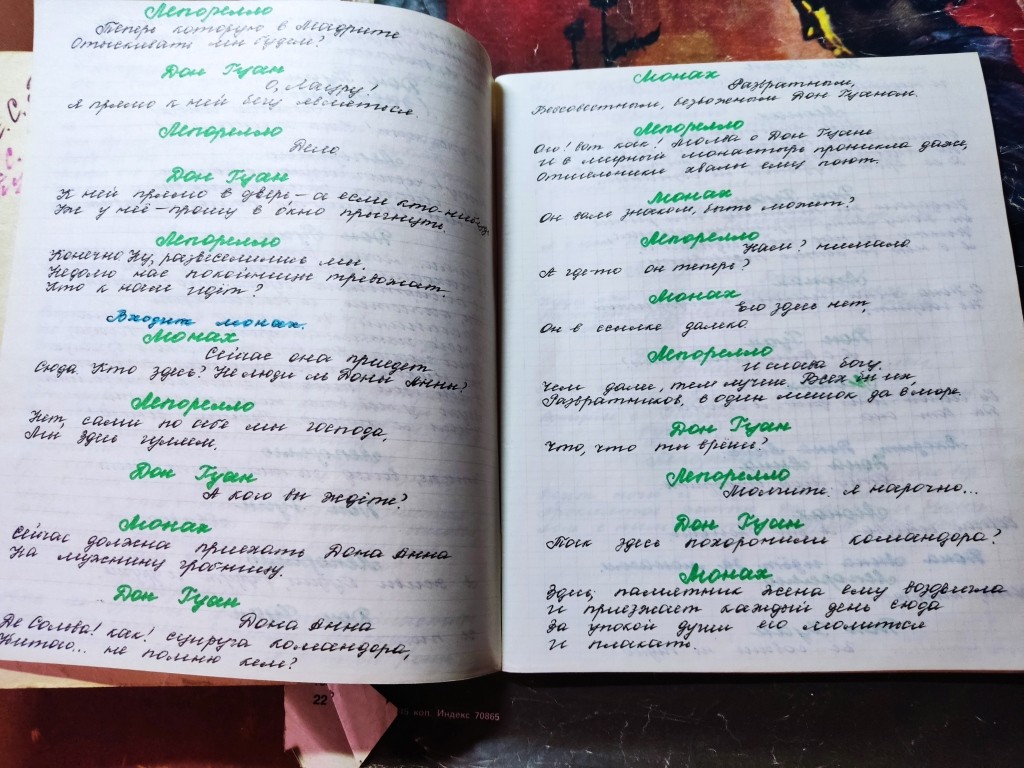 Лепорелло
Теперь которую в Мадрите
Отыскивать мы будем?
Дон Гуан
О, Лауру!
Я прямо к ней бегу являться.
Лепорелло
Дело
Дон Гуан
К ней прямо в дверь – а если кто-нибудь
Уж у неё – прошу в окно прыгнуть.
Лепорелло
Конечно Ну, развеселились мы.
Недолго нас покойницы тревожат.
Кто к нам идёт?
Входит монах.
Монах
Сейчас она приедет
Сюда. Кто здесь? Не люди ль Доны Анны?
Лепорелло
Нет, сами по себе мы господа,
Мы здесь гуляем.
Дон Гуан
А кого вы ждёте?
Монах
Сейчас должна приехать Дона Анна
На мужнину гробницу.
Дон Гуан
Дона Анна
Де Сольва! как! супруга командора,
Убитого... не помню кем?
Монах
Развратным,
Бессовестным, безбожным Дон Гуаном.
Лепорелло
Ого! Вот как! Молва о Дон Гуане
И в мирный монастырь проникла даже,
Отшельники хвалы ему поют.
Монах
Он вам знаком, быть может?
Лепорелло
Нам? нимало
А где-то он теперь?
Монах
Его здесь нет,
Он в ссылке далеко.
Лепорелло
И слава богу.
Чем далее, тем лучше. Всех бы их,
Развратников, в один мешок да в море.
Дон Гуан
Что, что ты врёшь?
Лепорелло
Молчите: я нарочно...
Дон Гуан
Так здесь похоронили командора?
Монах
Здесь; памятник жена ему воздвигла
И приезжает каждый день сюда
За упокой души его молиться
И плакать.
22
коп. Индекс 70865